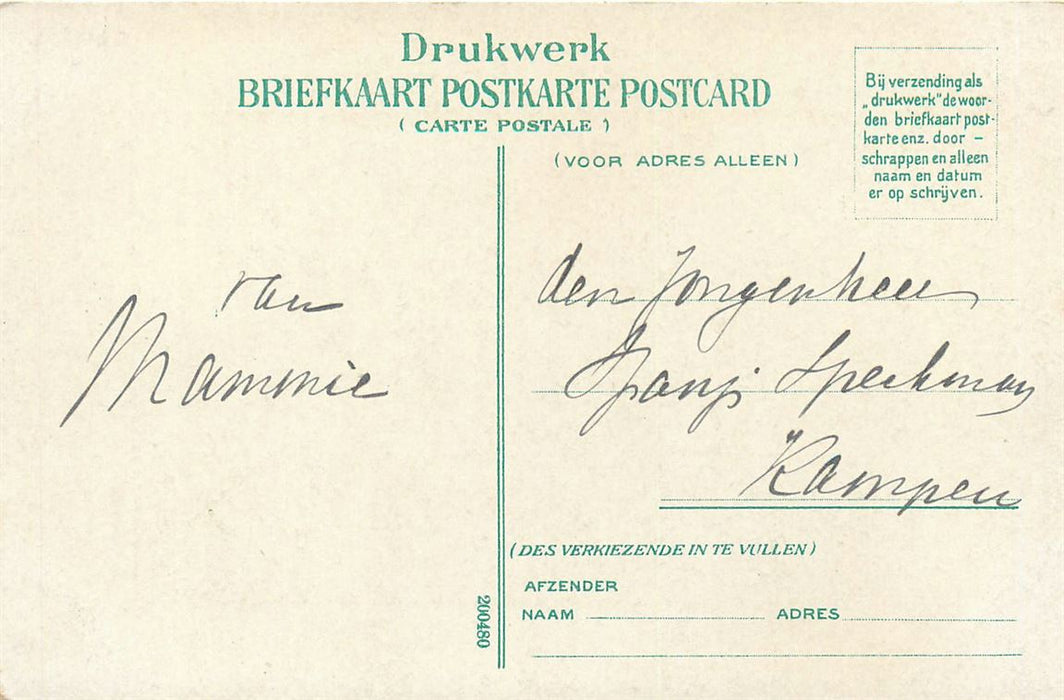 Drukwerk
BRIEFKAART POSTKARTE POSTCARD
( CARTE POSTALE )
(VOOR ADRES ALLEEN)
Bij verzending als
„drukwerk" de woor-
den briefkaart post-
karte enz. door –
schrappen en alleen
naam en datum
er op schrijven.
van
Mammie
den Jongenheer
Speckman
Kampen
(DES VERKIEZENDE IN TE VULLEN)
AFZENDER
NAAM ADRES
200480